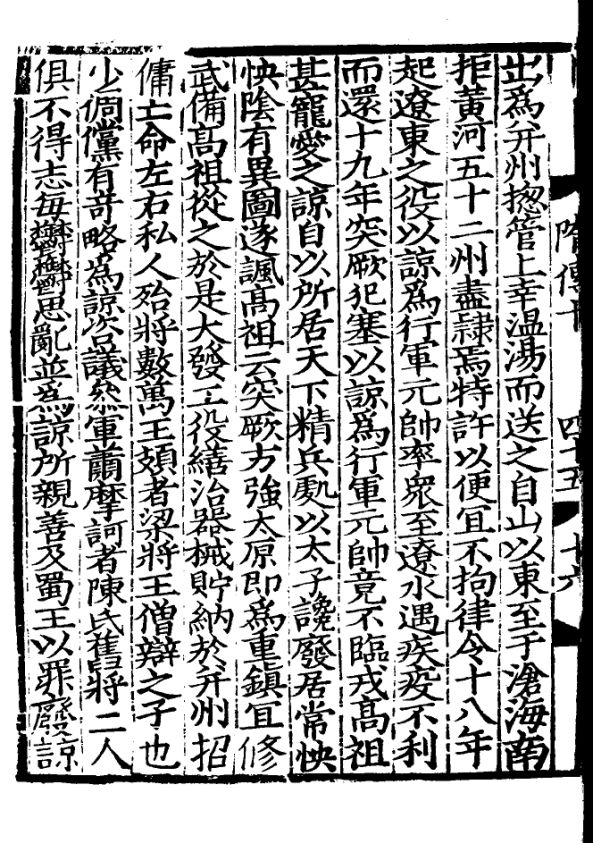 隋傳十 四十五 十六
出為并州揔管上幸温湯而送之自山以東至于滄海南
拒黃河五十二州盡隷焉特許以便冝不拘律令十八年
起遼東之役以諒為行軍元帥率衆至遼水遇疾疫不利
而還十九年突厥犯塞以諒為行軍元帥竟不臨戎髙祖
甚寵愛之諒自以所居天下精兵處以太子讒廢居常怏
怏陰有異圖遂諷髙祖云突厥方強太原即為重鎮冝修
武備髙祖從之於是大發工役繕治器械貯納於并州招
傭亡命左右私人殆將數萬王頍者梁將王僧辯之子也
少倜儻有奇略為諒咨議叅軍蕭摩訶者陳氏舊將二人
俱不得志每鬱鬱思亂並為諒所親善及蜀王以罪廢諒